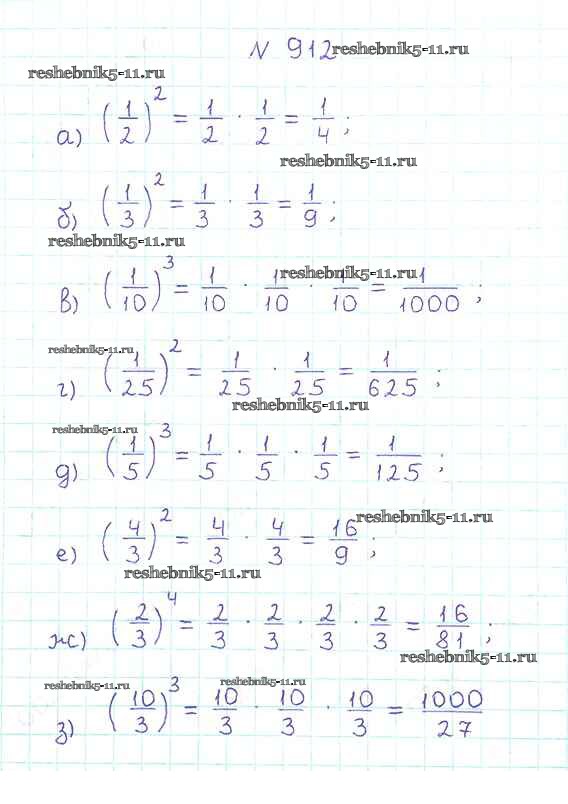 N 912 reshebnik5-11.ru
reshebnik5-11.ru
а) (1/2)^2 = 1/2 · 1/2 = 1/4 ;
reshebnik5-11.ru
б) (1/3)^2 = 1/3 · 1/3 = 1/9 ;
reshebnik5-11.ru
reshebnik5-11.ru
в) (1/10)^3 = 1/10 · 1/10 · 1/10 = 1/1000 ;
reshebnik5-11.ru
г) (1/25)^2 = 1/25 · 1/25 = 1/625 ;
reshebnik5-11.ru
reshebnik5-11.ru
д) (1/5)^3 = 1/5 · 1/5 · 1/5 = 1/125 ;
reshebnik5-11.ru
е) (4/3)^2 = 4/3 · 4/3 = 16/9 ;
reshebnik5-11.ru
ж) (2/3)^4 = 2/3 · 2/3 · 2/3 · 2/3 = 16/81 ;
reshebnik5-11.ru
reshebnik5-11.ru
reshebnik5-11.ru
з) (10/3)^3 = 10/3 · 10/3 · 10/3 = 1000/27